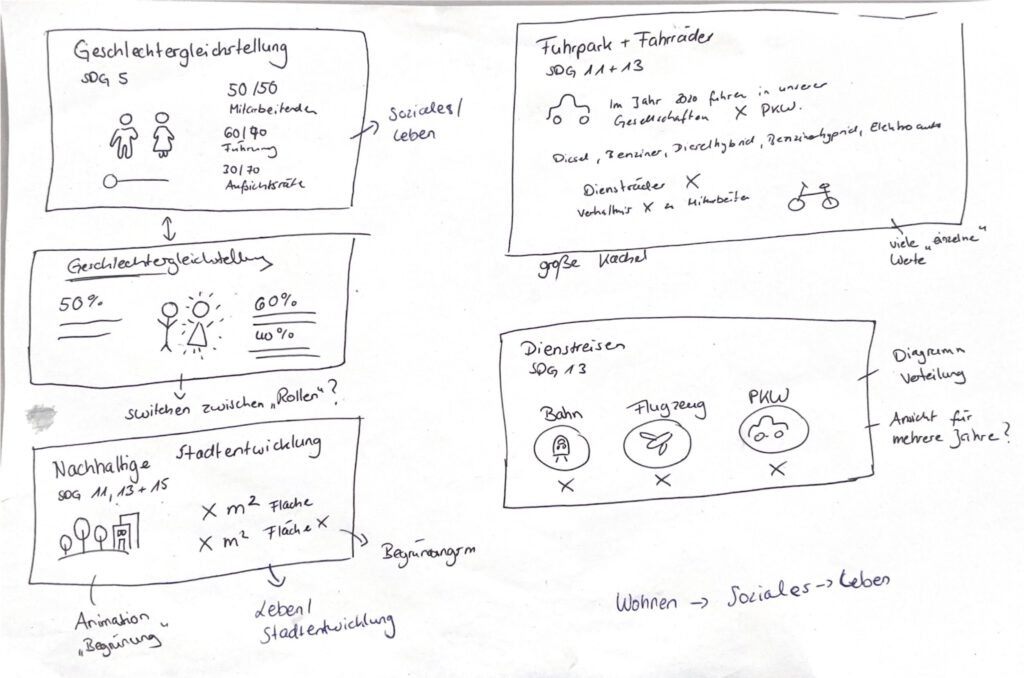 Geschlechtergleichstellung
SDG 5
50/50
Mitarbeitenden
60/40
Führung
30/70
Aufsichtsräte
Soziales/
Leben
Geschlechtergleichstellung
50%
60%
40%
switchen zwischen „Rollen“?
Nachhaltige Stadtentwicklung
SDG 11, 13 + 15
X m² Fläche
X m² Fläche X
Begrünungsm
Animation
„Begrünung“
Leben/
Stadtentwicklung
Fuhrpark + Fahrräder
SDG 11 + 13
Im Jahr 2020 fuhren in unserer
Gesellschaften X PKW.
Diesel, Benziner, Dieselhybrid, Benzinhybrid, Elektroauto
Diensträder X
Verhältnis X zu Mitarbeiter
große Kachel
viele „einzelne“
Werte
Dienstreisen
SDG 13
Bahn
Flugzeug
PKW
X
X
X
Diagramm
Verteilung
Ansicht für
mehrere Jahre?
Wohnen → Soziales → Leben